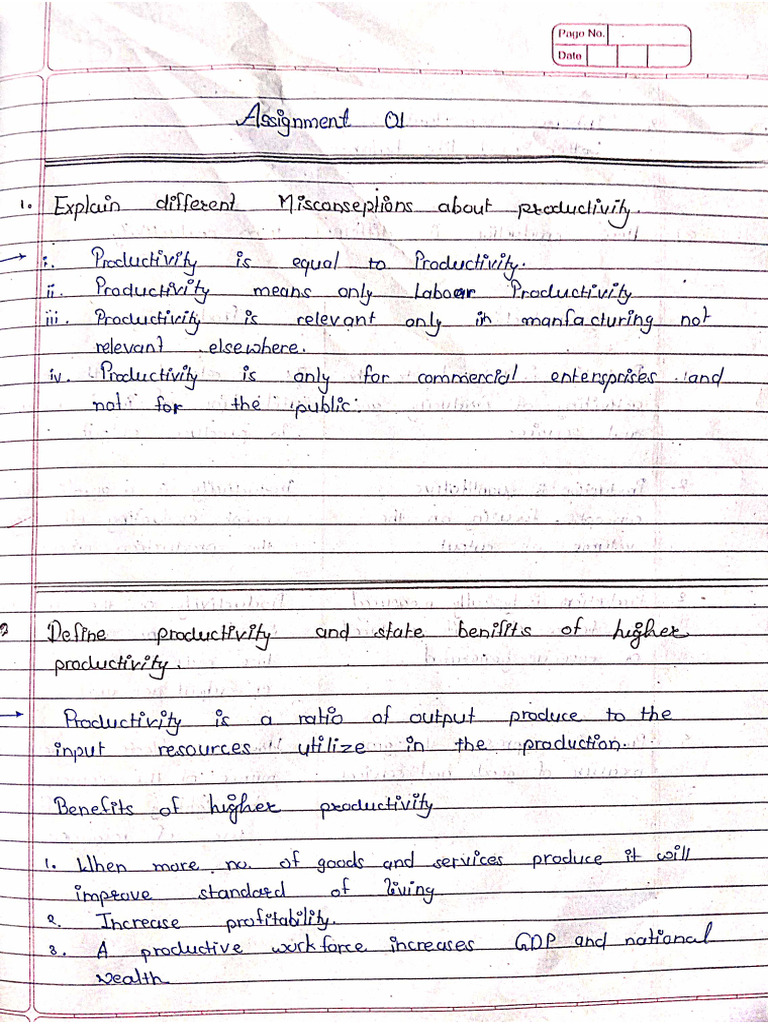 Page No.
Date
Assignment 01
1. Explain different Misconseptions about productivity.
→ i. Productivity is equal to Productivity.
ii. Productivity means only Labour Productivity
iii. Productivity is relevant only in manfacturing not
relevant elsewhere.
iv. Productivity is only for commercial entersprises and
not for the public.
2 Define productivity and state benifits of higher
productivity.
→ Productivity is a ratio of output produce to the
input resources utilize in the production.
Benefits of higher productivity
1. When more no. of goods and services produce it will
improve standard of living
2. Increase profitability.
3. A productive workforce increases GDP and national
wealth